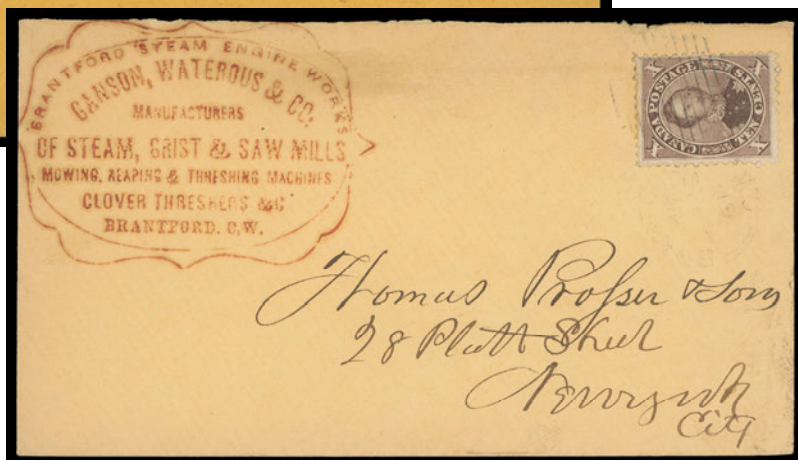 BRANTFORD STEAM ENGINE WORKS
GANSON, WATEROUS & CO.
MANUFACTURERS
OF STEAM, GRIST & SAW MILLS
MOWING, REAPING & THRESHING MACHINES
CLOVER THRESHERS &C
BRANTFORD. C.W.
CANADA POSTAGE
TEN CENTS
X X X X
Thomas Prosser & Sons
28 Platt Street
New York
City